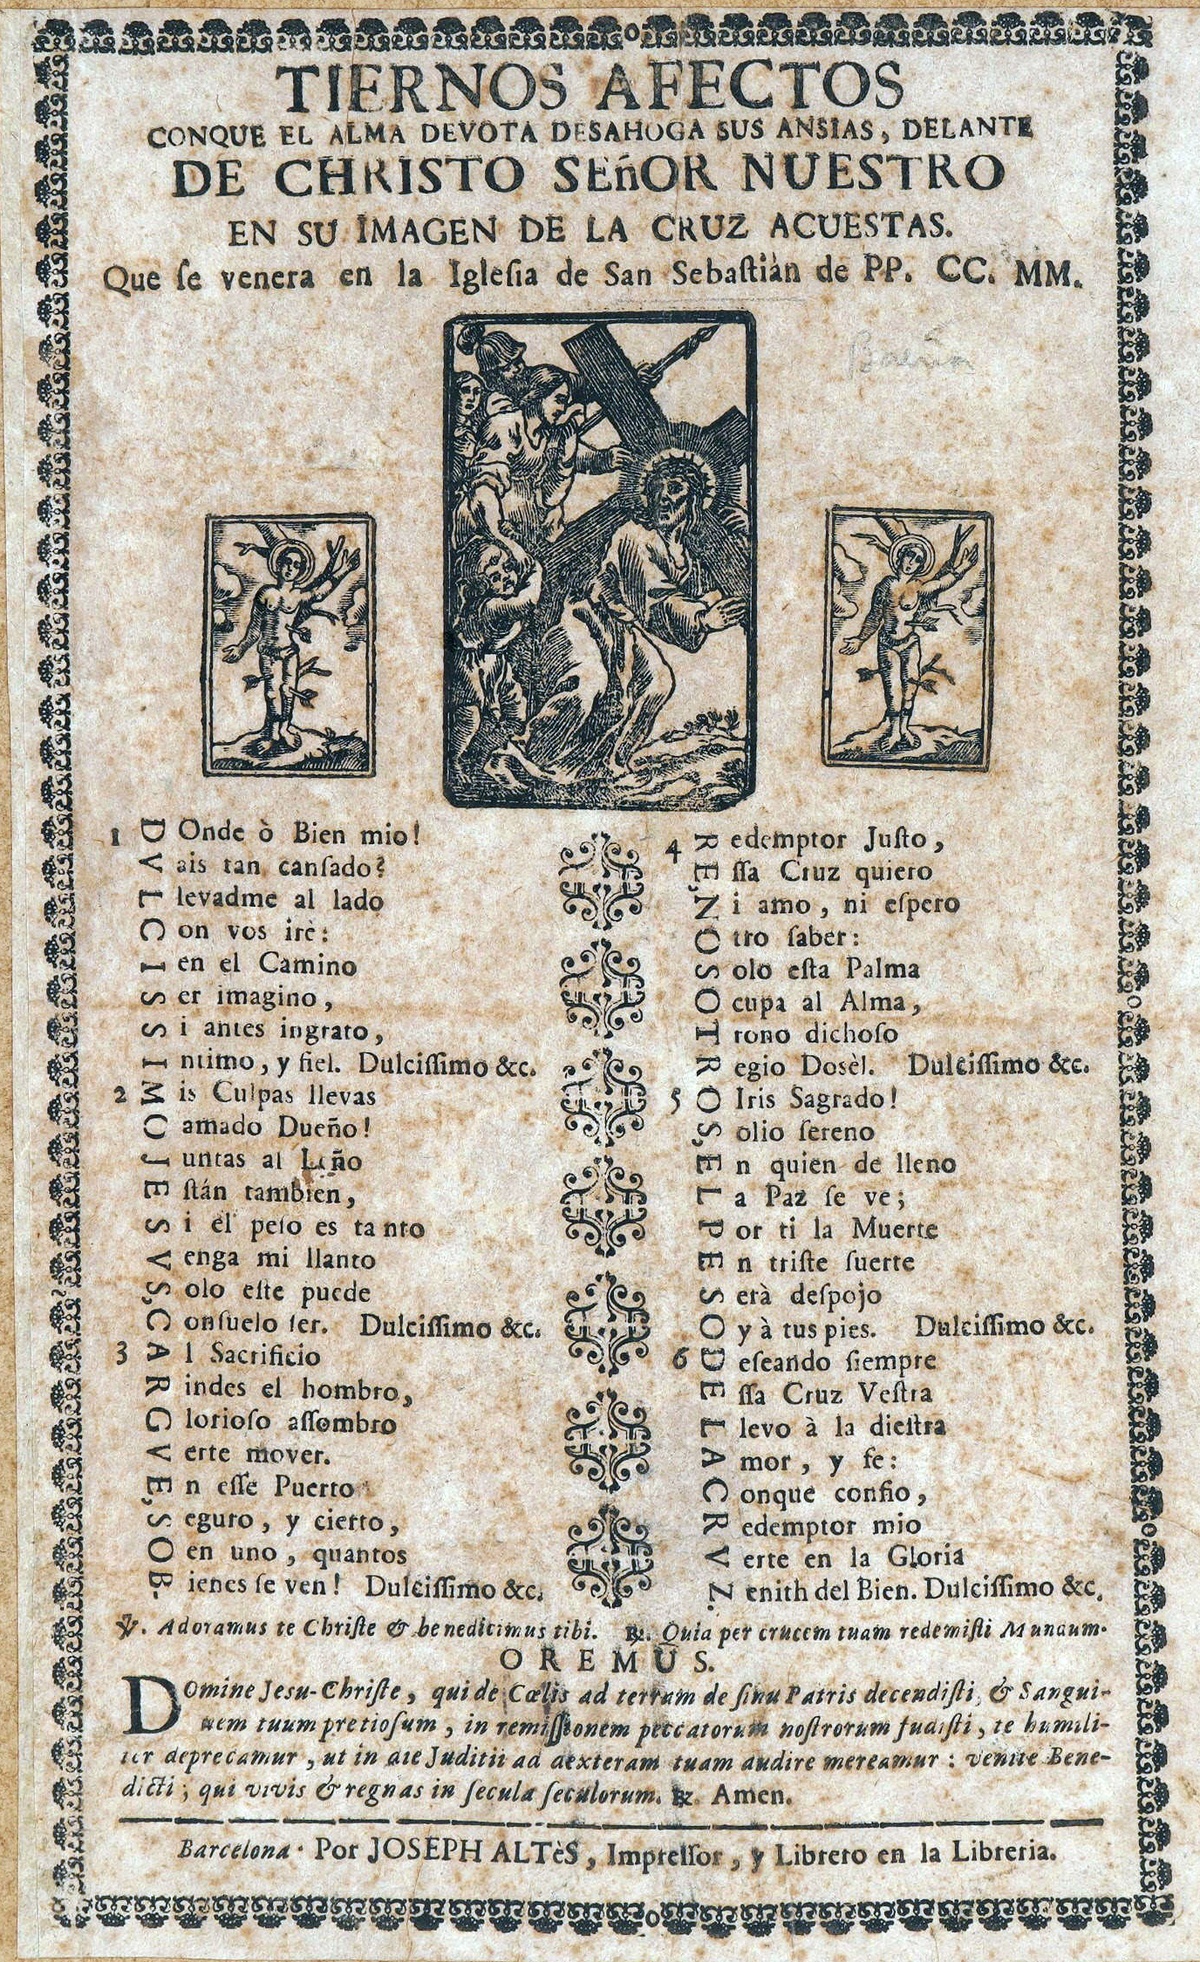 TIERNOS AFECTOS
CONQUE EL ALMA DEVOTA DESAHOGA SUS ANSIAS, DELANTE
DE CHRISTO SEñOR NUESTRO
EN SU IMAGEN DE LA CRUZ ACUESTAS.
Que ſe venera en la Igleſia de San Sebaſtiàn de PP. CC. MM.
1 DOnde ò Bien mio!
Vais tan canſado?
Llevadme al lado
Con vos irè:
I en el Camino
Ser imagino,
Si antes ingrato,
Intimo, y fiel. Dulciſſimo &c.
2 Mis Culpas llevas
O amado Dueño!
Juntas al Leño
Eſtán tambien,
Si el peſo es tanto
Venga mi llanto
Solo eſte puede
Conſuelo ſer. Dulciſſimo &c.
3 Al Sacrificio
Rindes el hombro,
Glorioſo aſſombro
Verte mover.
En eſſe Puerto
Seguro, y cierto,
O en uno, quantos
Bienes ſe ven! Dulciſſimo &c.
4 Redemptor Juſto,
Eſſa Cruz quiero
Ni amo, ni eſpero
Otro ſaber:
Solo eſta Palma
Ocupa al Alma,
Trono dichoſo
Regio Dosèl. Dulciſſimo &c.
5 O Iris Sagrado!
Solio ſereno
En quien de lleno
La Paz ſe ve;
Por ti la Muerte
En triſte ſuerte
Serà deſpojo
Oy à tus pies. Dulciſſimo &c.
6 Deſeando ſiempre
Eſſa Cruz Veſtra
Llevo à la dieſtra
Amor, y fe:
Conque confio,
Redemptor mio
Verte en la Gloria
Zenith del Bien. Dulciſſimo &c.
℣. Adoramus te Chriſte & benedicimus tibi. ℟. Quia per crucem tuam redemiſti Mundum.
OREMUS.
DOmine Jesu-Chriſte, qui de Cœlis ad terram de ſinu Patris decendiſti, & Sangui-
nem tuum pretioſum, in remiſſionem peccatorum noſtrorum fudiſti, te humili-
ter deprecamur, ut in die Juditii ad dexteram tuam audire mereamur: venite Bene-
dicti; qui vivis & regnas in ſecula ſeculorum. ℟. Amen.
Barcelona. Por JOSEPH ALTèS, Impreſſor, y Librero en la Libreria.